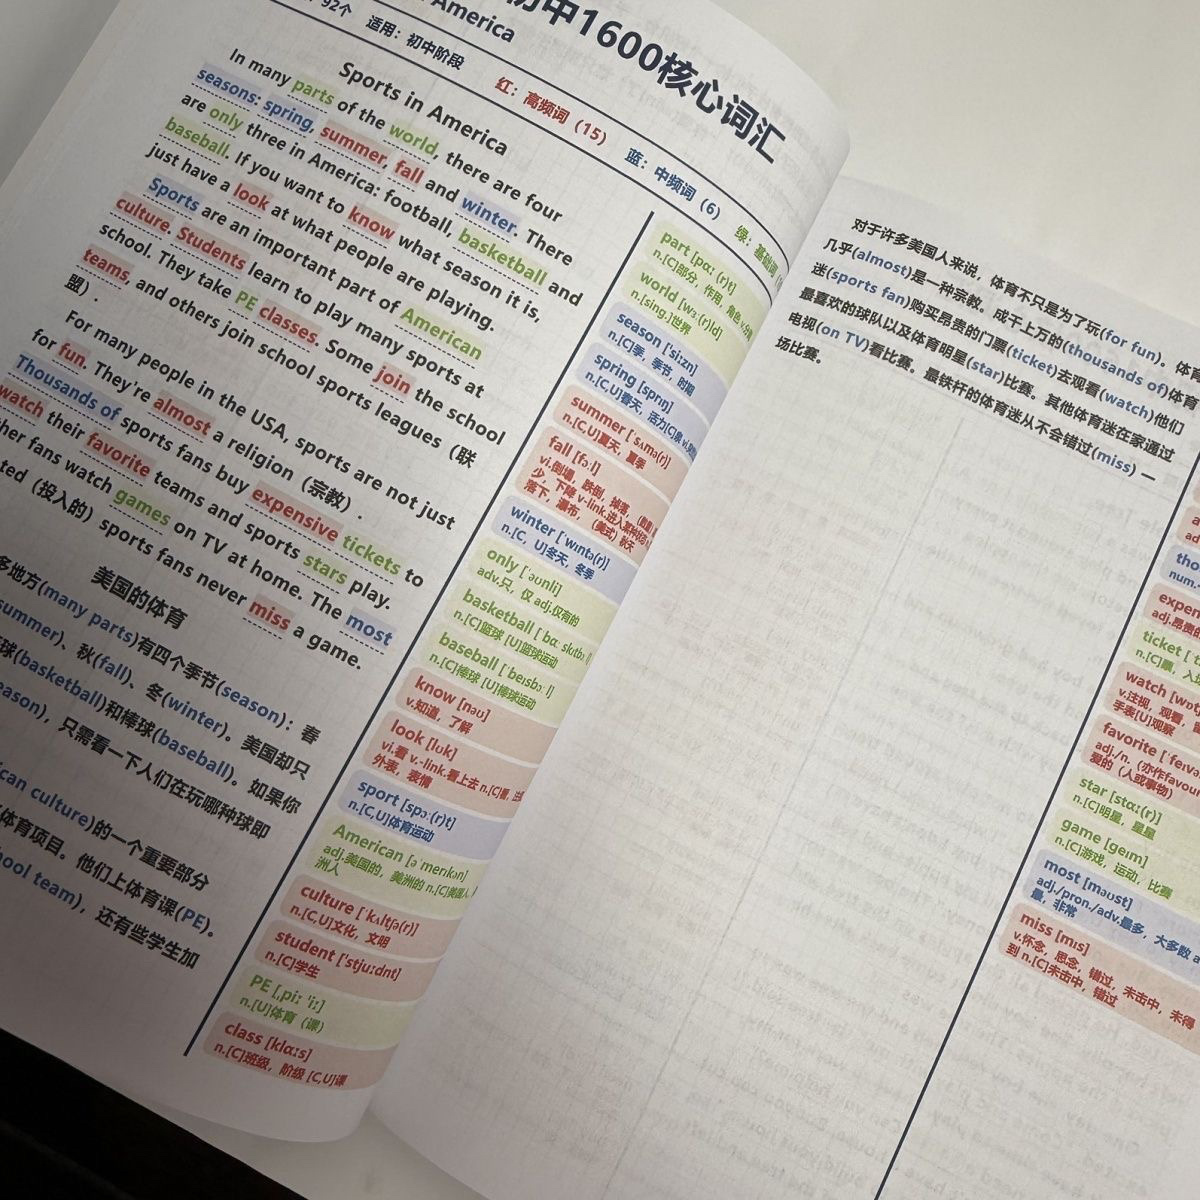 初中1600核心词汇
America
92个 适用：初中阶段 红：高频词（15） 蓝：中频词（6） 绿：基础词
Sports in America
In many parts of the world, there are four
seasons: spring, summer, fall and winter. There
are only three in America: football, basketball and
baseball. If you want to know what season it is,
just have a look at what people are playing.
Sports are an important part of American
culture. Students learn to play many sports at
school. They take PE classes. Some join the school
teams, and others join school sports leagues（联
盟）.
For many people in the USA, sports are not just
for fun. They're almost a religion（宗教）.
Thousands of sports fans buy expensive tickets to
watch their favorite teams and sports stars play.
her fans watch games on TV at home. The most
ted（投入的）sports fans never miss a game.
美国的体育
多地方(many parts)有四个季节(season)：春
summer)、秋(fall)、冬(winter)。美国却只
球(basketball)和棒球(baseball)。如果你
eason)，只需看一下人们在玩哪种球即
can culture)的一个重要部分
体育项目。他们上体育课(PE)。
hool team)，还有些学生加
part [pɑː(r)t]
n.[C]部分，作用，角色
world [wɜː(r)ld]
n.[sing.]世界
season ['siːzn]
n.[C]季，季节，时期
spring [sprɪŋ]
n.[C,U]春天，活力[C]泉
summer ['sʌmə(r)]
n.[C,U]夏天，夏季
fall [fɔːl]
vi.倒塌，跌倒，掉落，
少，下降 v-link.进入某种状态
落下，瀑布，（美式）秋天
winter ['wɪntə(r)]
n.[C, U]冬天，冬季
only ['əʊnli]
adv.只，仅 adj.仅有的
basketball
n.[C]篮球 [U]篮球运动
baseball ['beɪsbɔːl]
n.[C]棒球 [U]棒球运动
know [nəʊ]
v.知道，了解
look [lʊk]
vi.看 v.-link.看上去 n.[C]看，
外表，表情
sport [spɔː(r)t]
n.[C,U]体育运动
American [ə'merɪkən]
adj.美国的，美洲的 n.[C]美国人，
洲人
culture ['kʌltʃə(r)]
n.[C,U]文化，文明
student ['stjuːdnt]
n.[C]学生
PE [ˌpiː 'iː]
n.[U]体育（课）
class [klɑːs]
n.[C]班级，阶级 [C,U]课
对于许多美国人来说，体育不只是为了玩(for fun)，体育
几乎(almost)是一种宗教。成千上万的(thousands of)体育
迷(sports fan)购买昂贵的门票(ticket)去观看(watch)他们
最喜欢的球队以及体育明星(star)比赛。其他体育迷在家通过
电视(on TV)看比赛。最铁杆的体育迷从不会错过(miss) 一
场比赛。
tho
num.
expen
adj.昂贵的
ticket
n.[C]票，
watch
v.注视，观看，
手表[U]观察
favorite
adj./n.（亦作favour
爱的（人或事物）
star [stɑː(r)]
n.[C]明星，星星
game [ɡeɪm]
n.[C]游戏，运动，比赛
most [məʊst]
adj./pron./adv.最多，大多数
最，非常
miss [mɪs]
v.怀念，思念，错过，未击中，未得
到 n.[C]未击中，错过